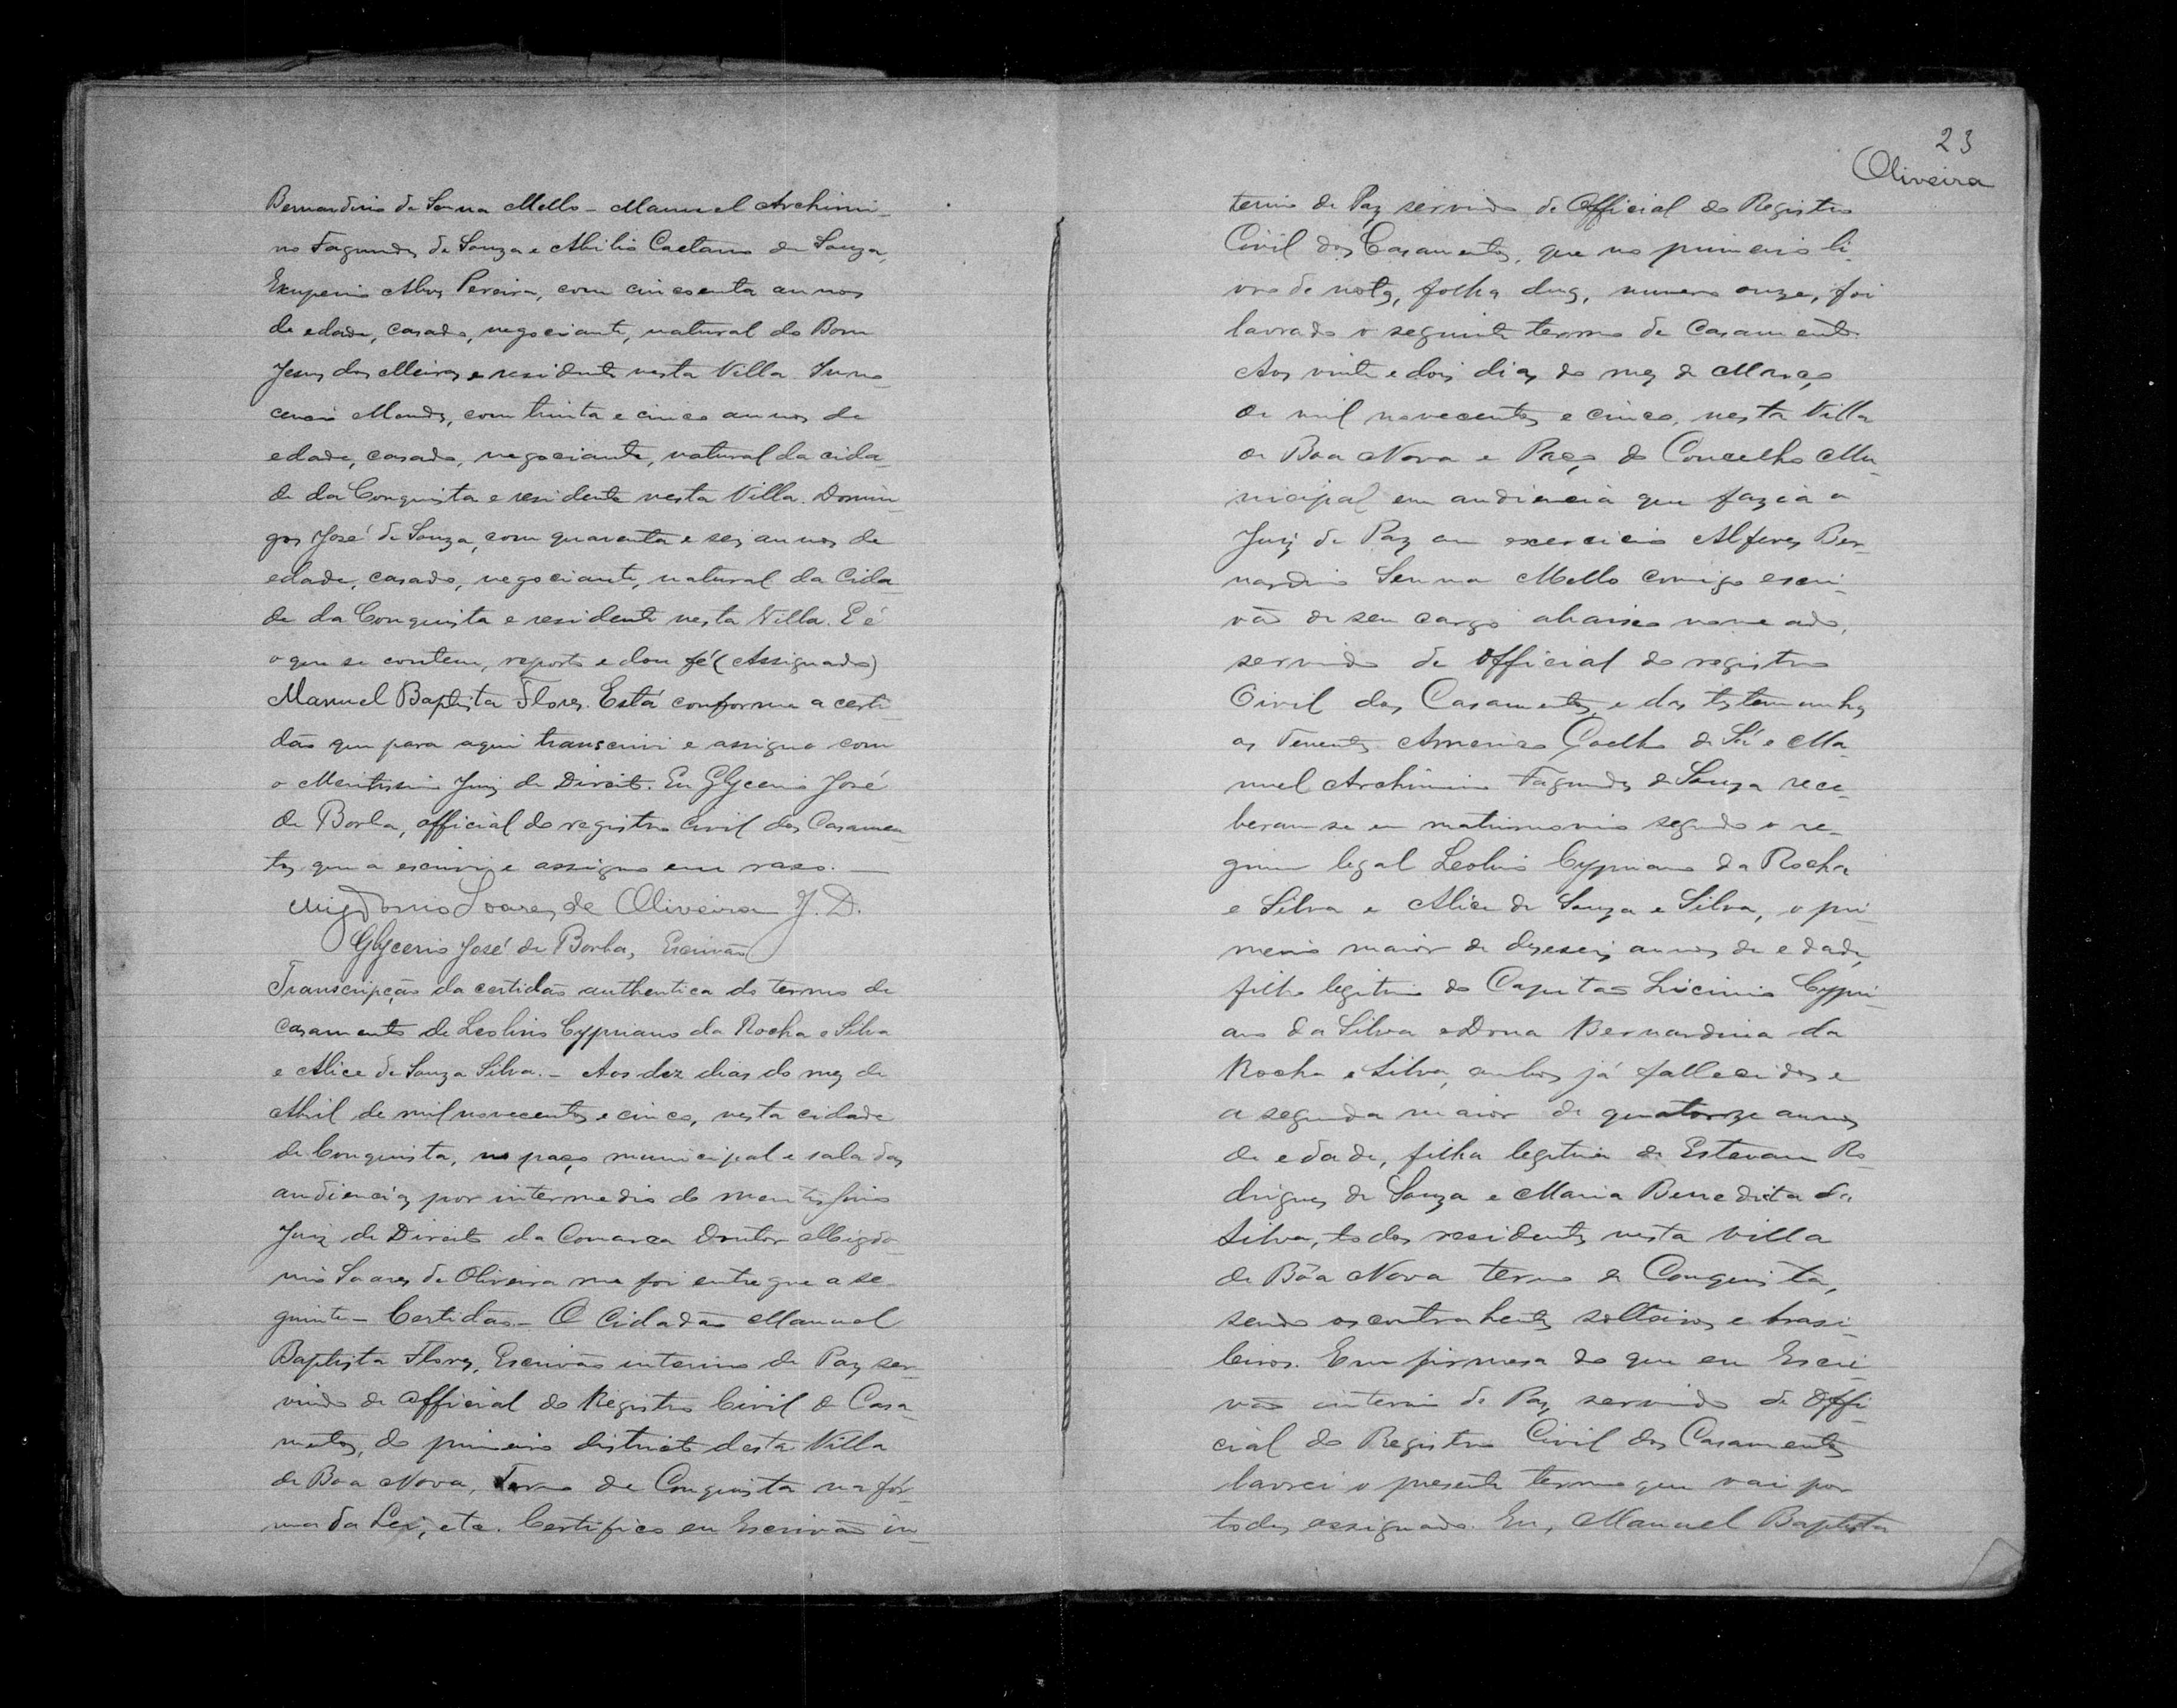 Bernardino de Senna Mello - Manuel Archimi-
no Fagundes de Souza e Abilio Caetano de Souza,
Exuperio Alves Pereira, com cincoenta annos
de edade, casado, negociante, natural do Bom
Jesus dos Meiras e residente nesta Villa. Inno-
cencio Mendes, com trinta e cinco annos de
edade, casado, negociante, natural da cida-
de da Conquista e residente nesta Villa. Domin-
gos José de Souza, com quarenta e seis annos de
edade, casado, negociante, natural da Cida-
de da Conquista e residente nesta Villa. E é
o que se contem, reporto e dou fé (Assignado)
Manuel Baptista Flores. Está conforme a certi-
dão que para aqui transcrivi e assigno com
o Meritissimo Juiz de Direito. Eu Glycerio José
de Borba, official do registro Civil dos Casamen-
tos que a escrivi e assigno em raso. —
Migdonio Soares de Oliveira J. D.
Glycerio José de Borba, Escrivão
Transcripção da certidão authentica do termo de
casamento de Leolino Cypriano da Rocha e Silva
e Alice de Souza Silva. - Aos dez dias do mez de
Abril de mil novecentos e cinco, nesta cidade
de Conquista, no paço municipal e sala das
audiencias por intermedio do meritissimo
Juiz de Direito da Comarca Doutor Migdo-
nio Soares de Oliveira me foi entregue a se-
guinte - Certidão - O Cidadão Manuel
Baptista Flores, Escrivão interino de Paz ser-
vindo de Official do Registro Civil de Casa-
mentos, do primeiro districto desta Villa
de Boa Nova, Termo de Conquista na fór-
ma da Lei, etc. Certifico eu Escrivão in-
23
Oliveira
terino de Paz servindo de Official do Registro
Civil dos Casamentos, que no primeiro li-
vro de notas, folha duas, numero onze, foi
lavrado o seguinte termo de Casamento.
Aos vinte e dois dias do mez de Março
de mil novecentos e cinco, nesta Villa
de Boa Nova e Paço do Concelho Mu-
nicipal em audiencia que fazia o
Juiz de Paz em exercicio Alferes Ber-
nardino Senna Mello comigo escri-
vão de seu cargo abaixo nomeado,
servindo de Official do registro
Civil dos Casamentos e das testemunhas
os Tenentes Americo Coelho de Sá e Ma-
nuel Archimino Fagundes de Souza rece-
beram-se em matrimonio segundo o re-
gimen legal Leolino Cypriano da Rocha
e Silva e Alice de Souza e Silva, o pri-
meiro maior de deseseis annos de edade,
filho legitimo do Capitão Licinio Cypri-
ano da Silva e Dona Bernardina da
Rocha e Silva, ambos já fallecidos e
a segunda maior de quatorze annos
de edade, filha legitima de Estevam Ro-
drigues de Souza e Maria Benedicta da
Silva, todos residentes nesta Villa
de Bôa Nova termo de Conquista,
sendo os contrahentes solteiros e brasi-
leiros. Em firmesa do que eu Escri-
vão interino de Paz servindo de Offi-
cial do Registro Civil dos Casamentos
lavrei o presente termo que vai por
todos assignado. Eu, Manuel Baptista